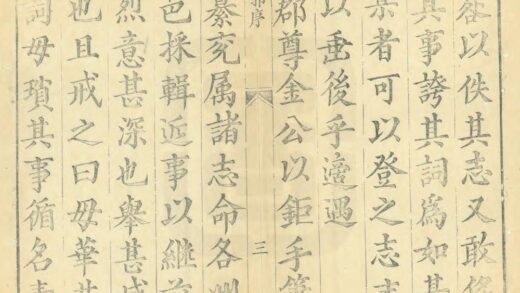 以佚其志又敢侈
其事誇其詞爲如某
者可以登之志
以垂後乎適遇
郡尊金公以鉅手筆
序 三
纂兖属諸志命各州
邑採輯近事以継前
烈意甚深也舉甚盛
也且戒之曰毋華其
詞毋瑣其事循名責